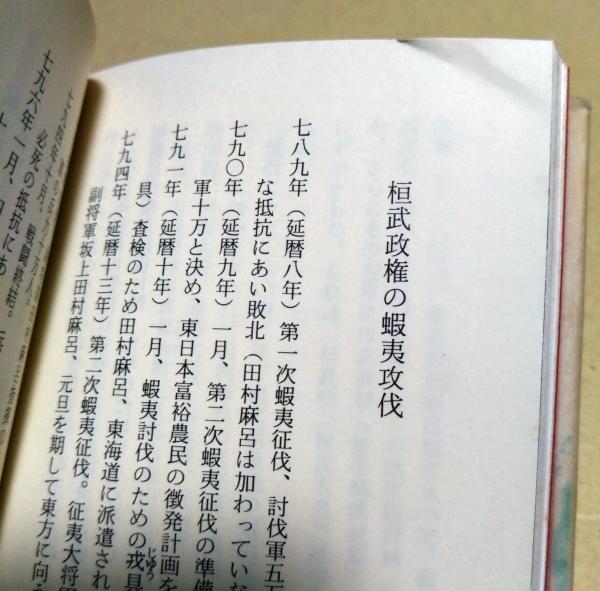 桓武政権の蝦夷攻伐
七八九年（延暦八年）第一次蝦夷征伐、討伐軍五万
な抵抗にあい敗北（田村麻呂は加わっていな
七九〇年（延暦九年）一月、第二次蝦夷征伐の準備
軍十万と決め、東日本富裕農民の徴発計画を
七九一年（延暦十年）一月、蝦夷討伐のための戎具
じゅう
具）査検のため田村麻呂、東海道に派遣され
七九四年（延暦十三年）第二次蝦夷征伐。征夷大将軍
副将軍坂上田村麻呂、元旦を期して東方に向う
必死の抵抗にあ
七九六年一月、戦闘終結。